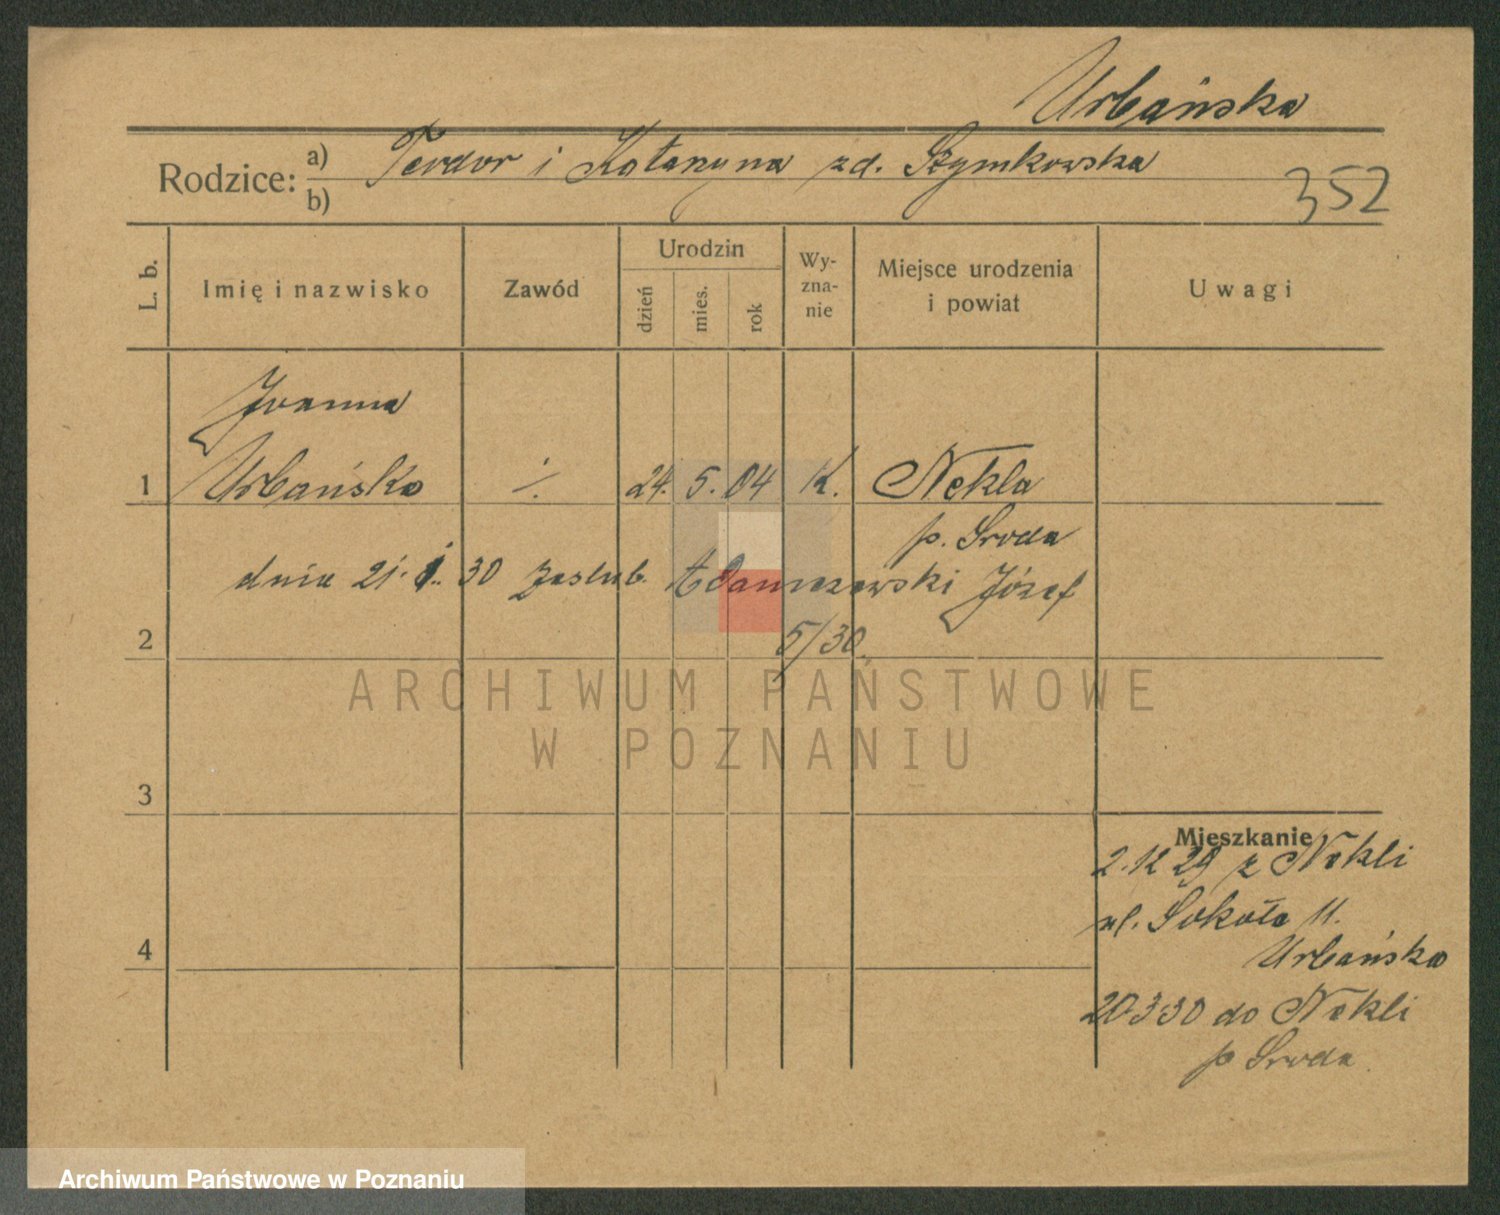 Urbańska
Rodzice: a) Teodor i Katarzyna zd. Szymkowska
b)
352
L. b. Imię i nazwisko Zawód Urodzin dzień mies. rok Wy-zna-nie Miejsce urodzenia i powiat Uwagi
Joanna
1 Urbańska ·/. 24. 5. 04 K. Nekla
p. Sroda
dnia 21. 1. 30 zaslub. Adamczewski Józef
2 5/30
ARCHIWUM PAŃSTWOWE
W POZNANIU
3
Mieszkanie
2.12 29 z Nekli
ul. Sokoła 11.
4 Urbańska
20 3 30 do Nekli
p Sroda
Archiwum Państwowe w Poznaniu